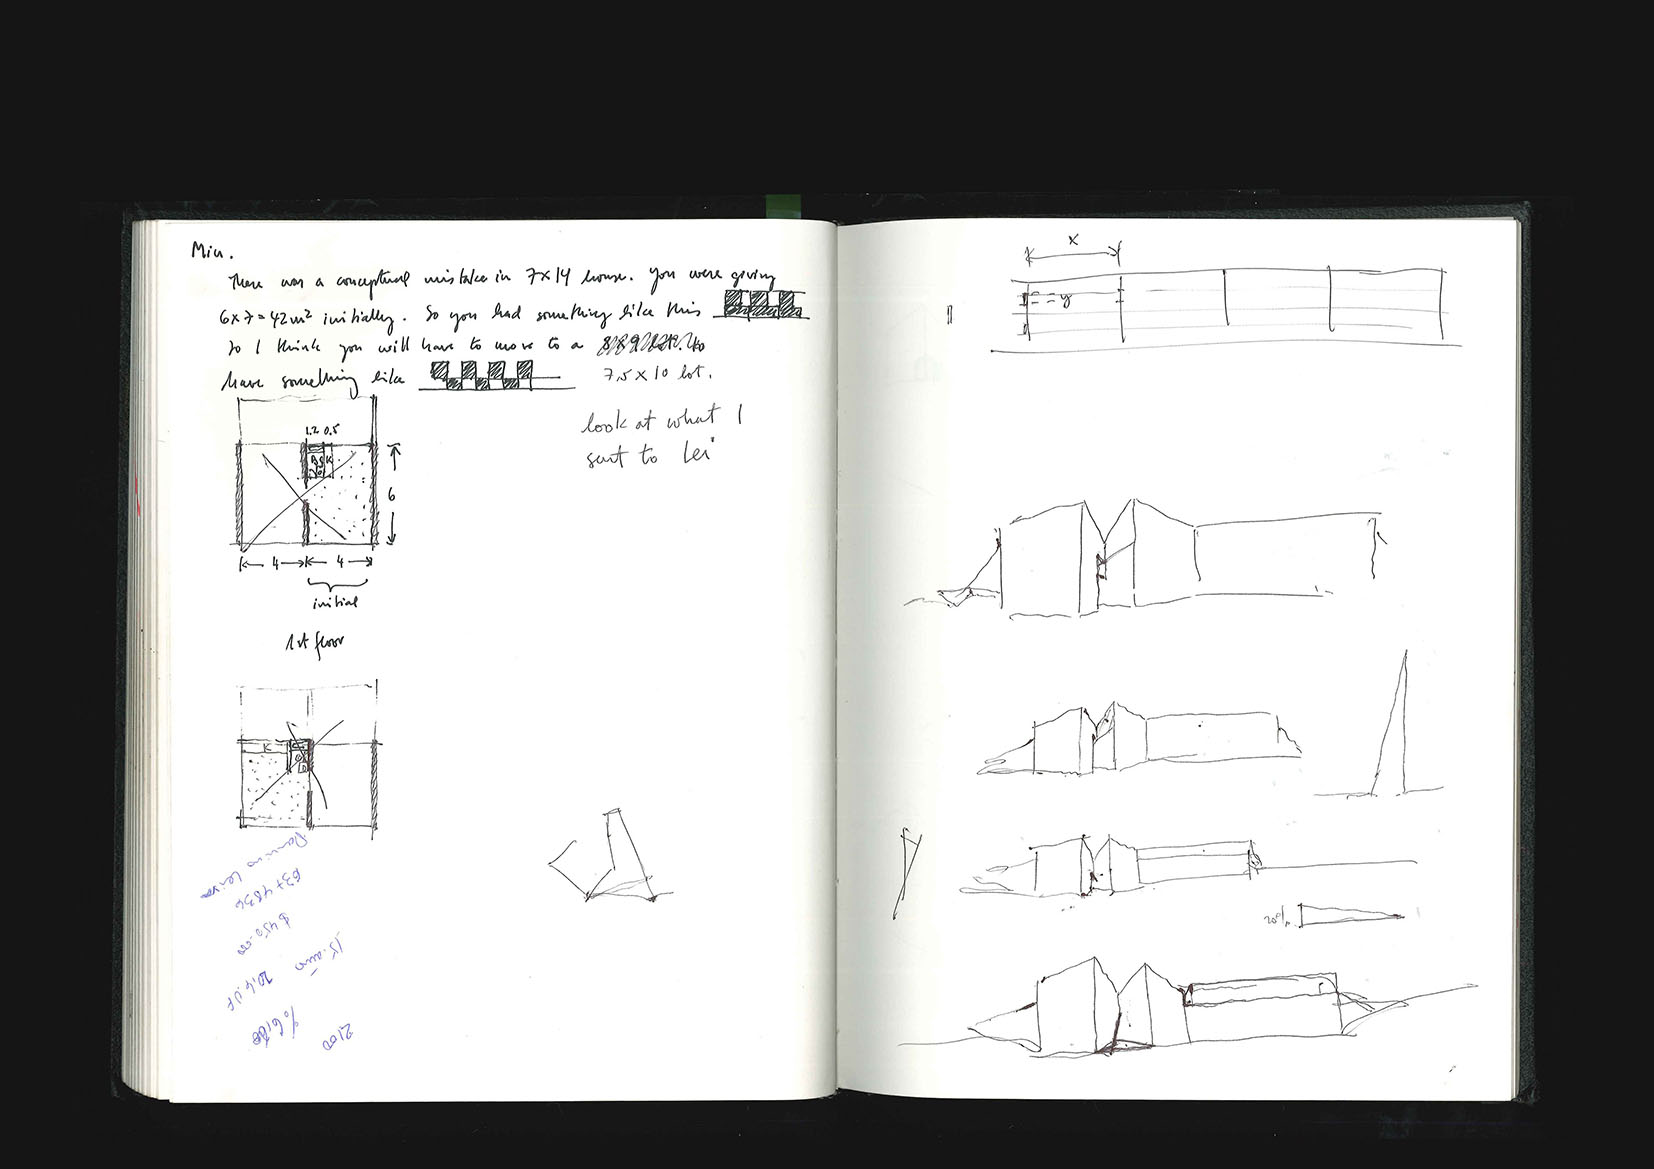 Min.
There was a conceptual mistake in 7x14 house. You were giving
6x7=42m² initially. So you had something like this
So I think you will have to move to a to
have something like 7,5 x 10 lot.
look at what I
sent to Lei
1.2 0.5
K
6
4 4
initial
1st floor
K
63+4836
$450.000
20,4 UF
2100
x
y
20%